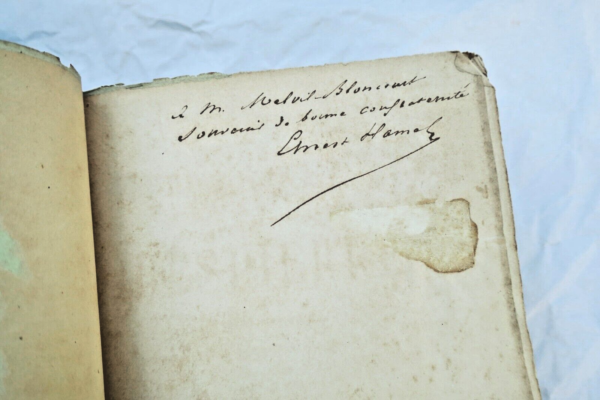 à M. Melvil-Bloncourt
Souvenir de bonne confraternité
Ernest Hamel